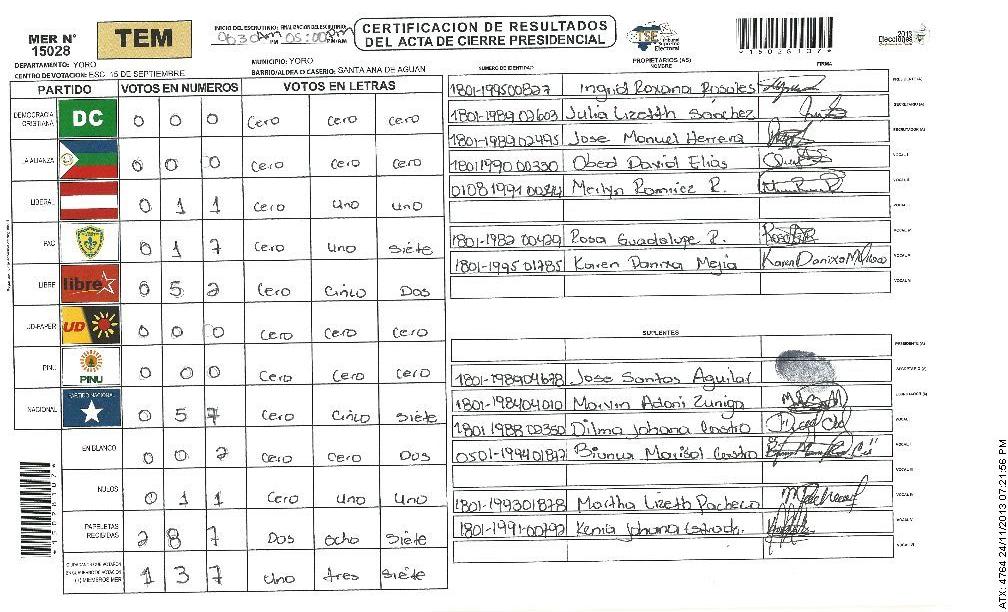 MER N° 15028
TEM
INICIO DEL ESCRUTINIO: FINALIZACION DEL ESCRUTINIO:
0630 Am PM 05:00 PM
CERTIFICACION DE RESULTADOS
DEL ACTA DE CIERRE PRESIDENCIAL
TSE
2013
Elecciones
DEPARTAMENTO: YORO
MUNICIPIO: YORO
CENTRO DE VOTACION: ESC. 15 DE SEPTIEMBRE
BARRIO/ALDEA O CASERIO: SANTA ANA DE AGUAN
PARTIDO VOTOS EN NUMEROS VOTOS EN LETRAS
DEMOCRACIA CRISTIANA DC 0 0 0 Cero cero cero
LA ALIANZA 0 0 0 cero cero cero
LIBERAL 0 1 1 cero uno uno
PAC 0 1 7 cero uno siete
LIBRE libre 0 5 2 Cero cinco Dos
UD-FAPER UD 0 0 0 cero cero cero
PINU PINU 0 0 0 cero cero cero
NACIONAL PARTIDO NACIONAL 0 5 7 cero cinco siete
EN BLANCO 0 0 2 cero cero Dos
NULOS 0 1 1 cero uno uno
PAPELETAS RECIBIDAS 2 8 7 Dos ocho siete
1 3 7 uno tres siete
NUMERO DE IDENTIDAD PROPIETARIOS (AS) NOMBRE FIRMA
1801-199500827 Ingrid Roxana Rosales PRESIDENTE (A)
1801-1989 02603 Julia Lizeth Sanchez SECRETARIO (A)
1801-1989 02495 Jose Manuel Herrera ESCRUTADOR (A)
1801 1990 00330 Obed David Elias VOCAL I
0108 1991 Merlyn Ramirez R. VOCAL II
VOCAL III
1801-1982 00429 Rosa Guadalupe R. VOCAL IV
1801-1995 01785 Karen Danixa Mejia VOCAL V
VOCAL VI
SUPLENTES
PRESIDENTE (A)
1801-198904678 Jose Santos Aguilar SECRETARIO (A)
1801-198404010 Marvin Adoni Zuniga ESCRUTADOR (A)
1801 1988 00350 Dilma Johana Castro VOCAL I
0501-199401877 Marisol Castro VOCAL II
VOCAL III
1801-199301878 Martha Lizeth Pacheco VOCAL IV
1801-1991-00792 Kenia Johana VOCAL V
VOCAL VI
ATX: 4764 24/11/2013 07:21:56 PM